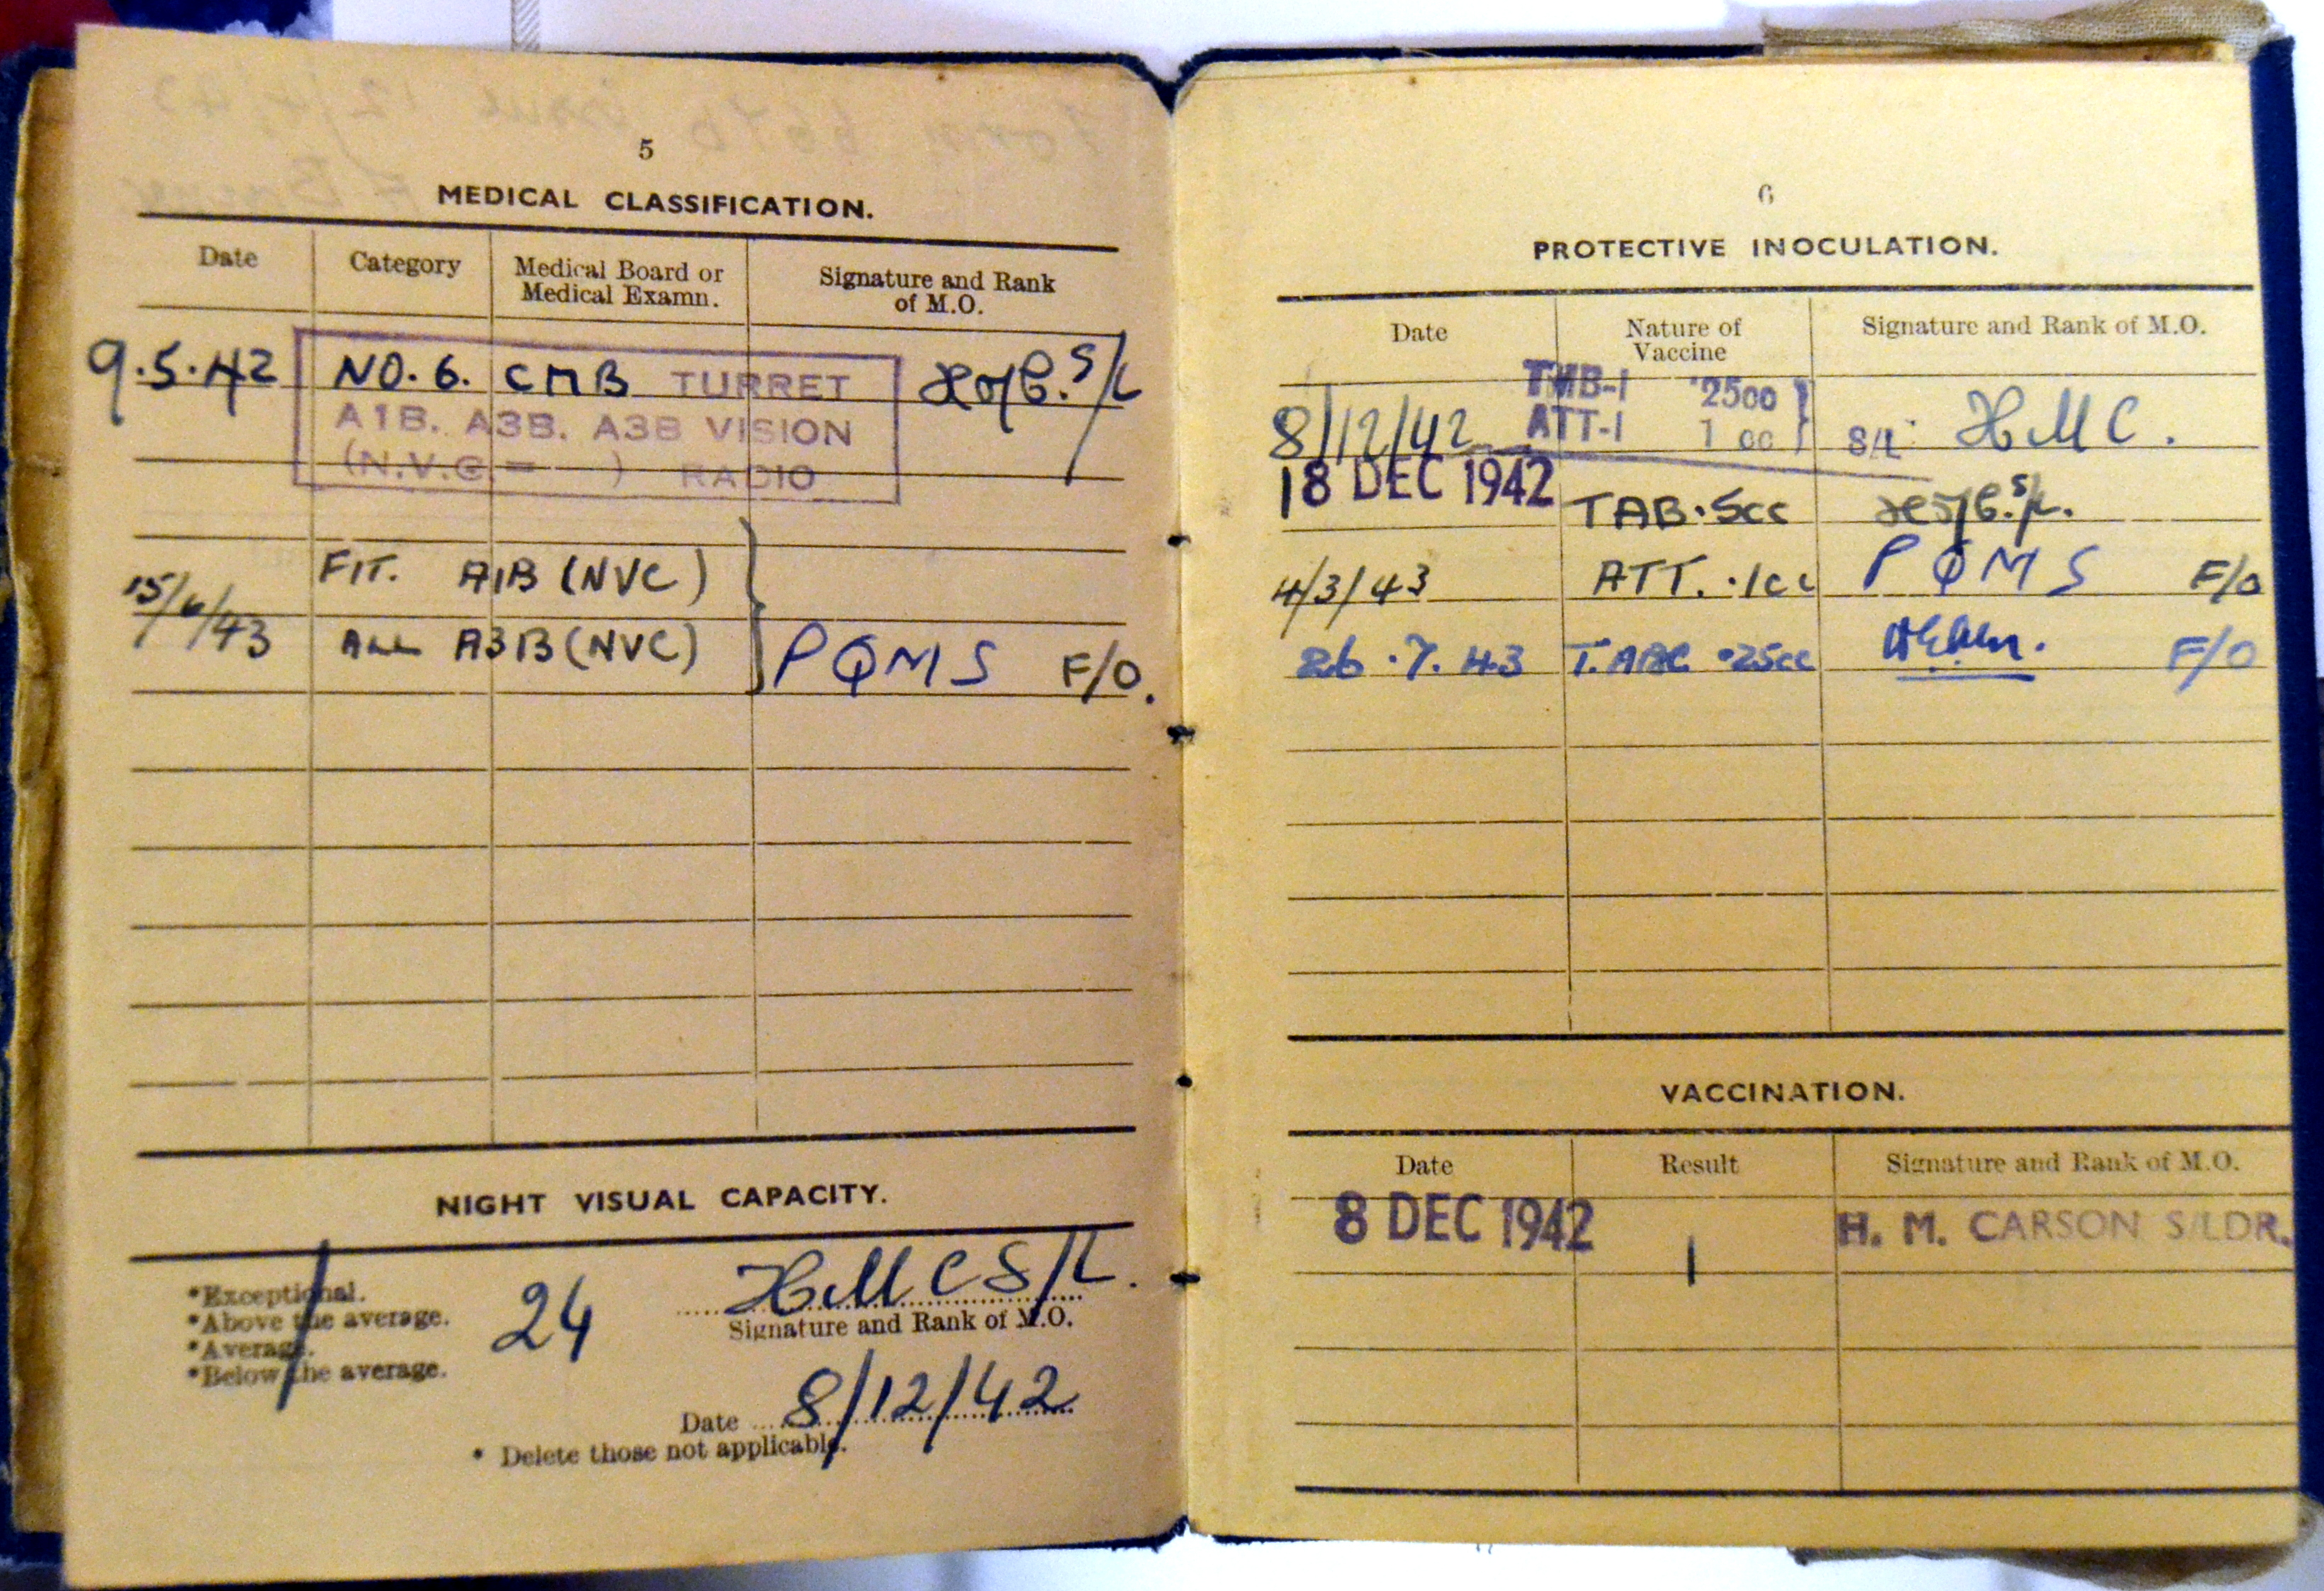 5
MEDICAL CLASSIFICATION.
Date Category Medical Board or Medical Examn. Signature and Rank of M.O.
9.5.42 NO. 6. CMB TURRET S/L
A1B. A3B. A3B VISION
(N.V.C. = ) RADIO
FIT. A1B (NVC)
15/6/43 ALL A3B (NVC) PQMS F/O.
NIGHT VISUAL CAPACITY.
*Exceptional.
*Above the average.
*Average.
*Below the average.
24
HMC S/L.
Signature and Rank of M.O.
Date 8/12/42
* Delete those not applicable.
6
PROTECTIVE INOCULATION.
Date Nature of Vaccine Signature and Rank of M.O.
8/12/42 ATT-1 1 cc S/L HMC.
18 DEC 1942 TAB .5cc S/L.
4/3/43 ATT. .1cc PQMS F/O
26.7.43 .25cc F/O
VACCINATION.
Date Result Signature and Rank of M.O.
8 DEC 1942 H. M. CARSON S/LDR.